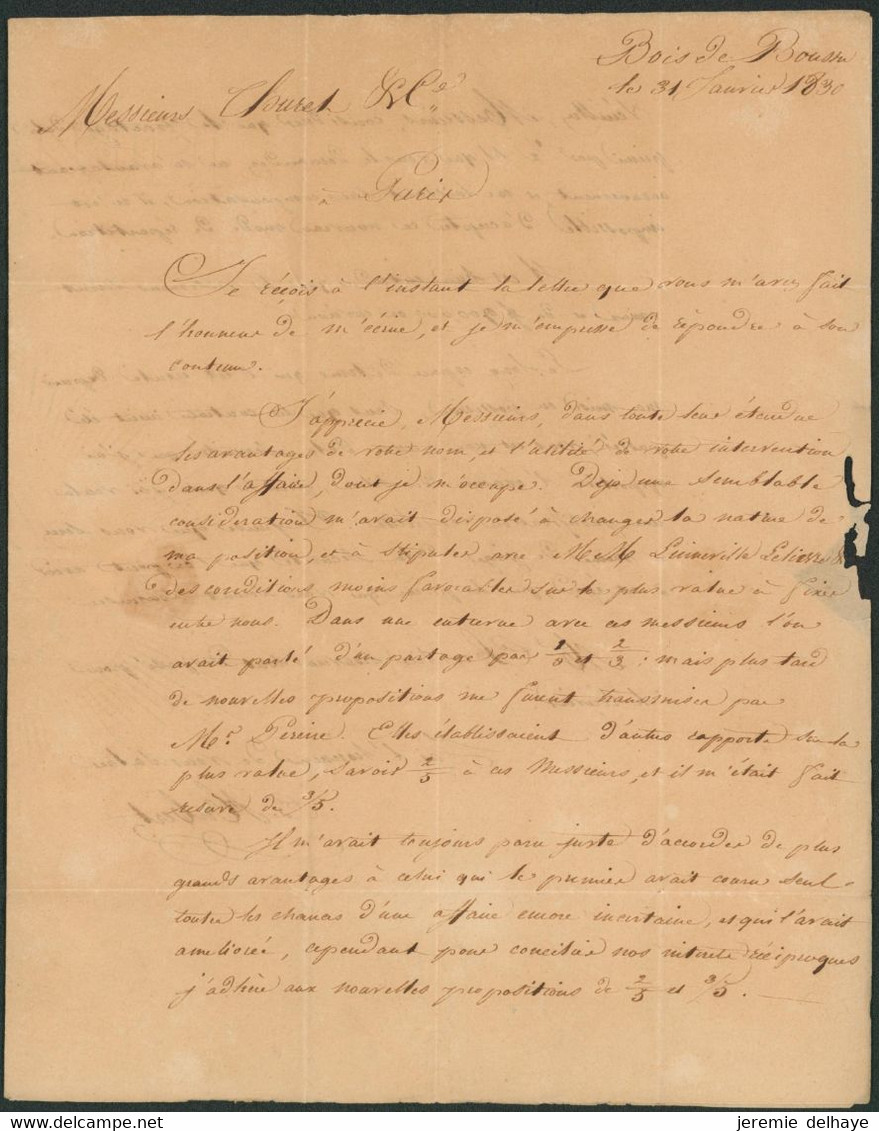 Bois de Boussu
le 31 Janvier 1830
Messieurs Thuret & Cie
à Paris
Je reçois à l'instant la lettre que vous m'avez fait
l'honneur de m'écrire, et je m'empresse de répondre à son
contenu.
J'apprécie, Messieurs, dans toute leur étendue
les avantages de votre nom, et l'utilité de votre intervention
dans l'affaire, dont je m'occupe. Déjà une semblable
consideration m'avait disposé à changer la nature de
ma position, et à stipuler avec M M
des conditions moins favorables sur la plus value à fixer
entre nous. Dans une entrevue avec ces messieurs l'on
avait parlé d'un partage par et 2/3 : mais plus tard
de nouvelles propositions me furent transmises par
Mr. Pereire. Elles établissaient d'autres rapports sur la
plus value, savoir 2/5 à ces Messieurs, et il m'était fait
reserve de 3/5.
Il m'avait toujours paru juste d'accorder de plus
grands avantages à celui qui le premier avait couru seul
toutes les chances d'une affaire encore incertaine, et qui l'avait
ameliorée, cependant pour concilier nos interets réciproques
j'adhère aux nouvelles propositions de 2/5 et 3/5.
delcampe.net
jeremie delhaye